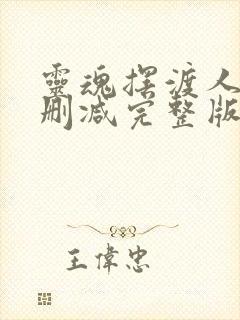 靈魂摆渡人
删减完整版
王偉忠